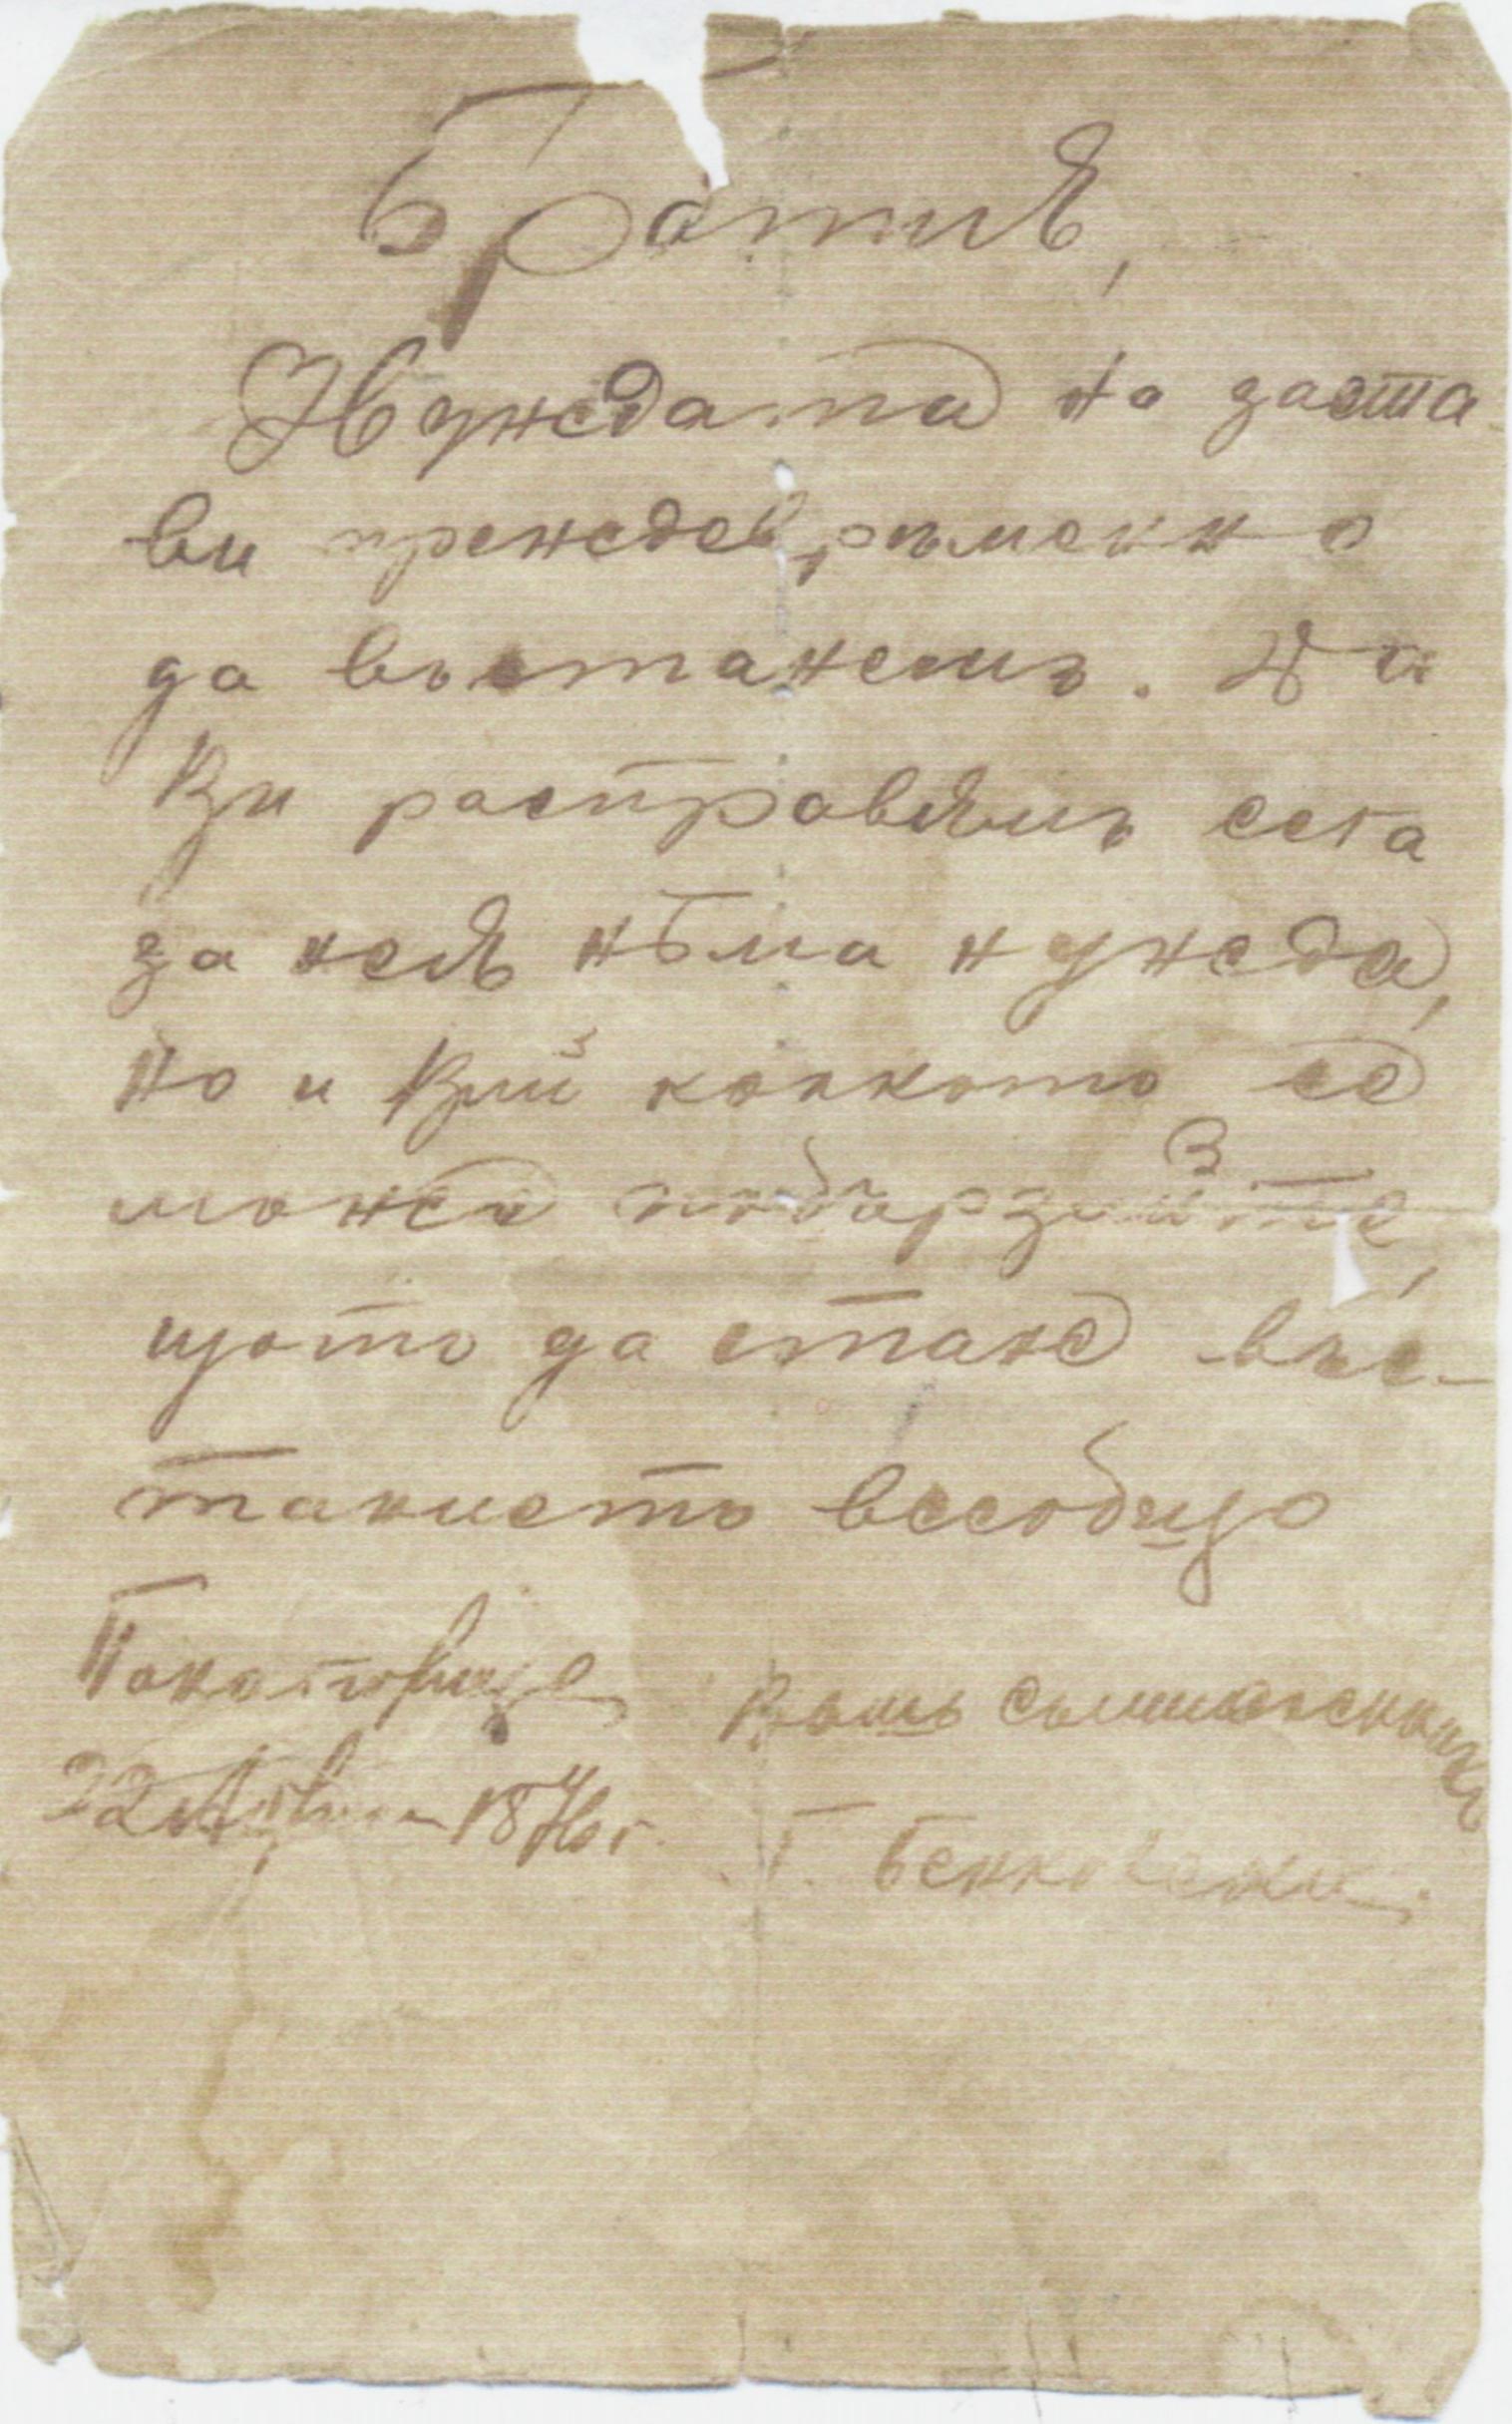 Братия,
Нуждата на заста
ви преждевръменно
да въстанемъ. Да
Ви расправямъ сега
за нея нѣма нужда,
но и Вий колкото се
може побързайте,
щото да стане въс-
танието всеобщо
Панагюрище Вашъ съмишленникъ
22 Априлий 1876 г. Г. Бенковски.